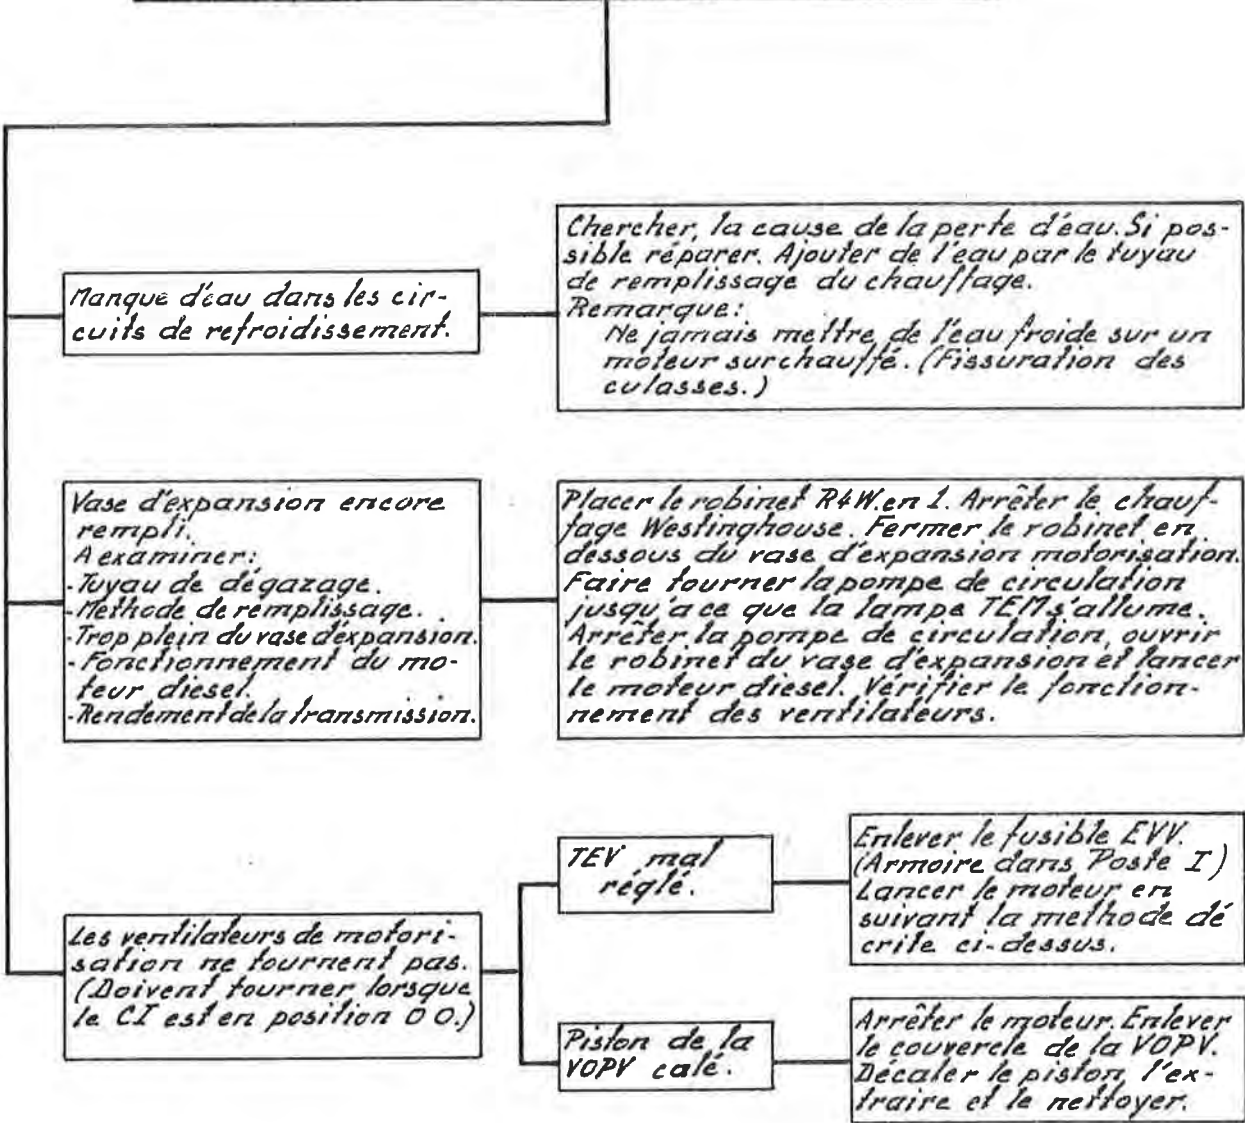 Manque d'éau dans les cir-
cuits de refroidissement.
Chercher, la cause de la perte d'éau. Si pos-
sible réparer. Ajouter de l'eau par le tuyau
de remplissage du chauffage.
Remarque:
Ne jamais mettre de l'eau froide sur un
moteur surchauffé. (Fissuration des
culasses.)
Vase d'expansion encore
rempli.
A examiner:
-Tuyau de dégazage.
-Méthode de remplissage.
-Trop plein du vase d'expansion.
-Fonctionnement du mo-
teur diesel.
-Rendement de la transmission.
Placer le robinet R4W. en 1. Arrêter le chauf-
fage Westinghouse. Fermer le robinet en
dessous du vase d'expansion motorisation.
Faire tourner la pompe de circulation
jusqu'a ce que la lampe TEM s'allume.
Arrêter la pompe de circulation, ouvrir
le robinet du vase d'expansion et lancer
le moteur diesel. Vérifier le fonction-
nement des ventilateurs.
Les ventilateurs de motori-
sation ne tournent pas.
(Doivent tourner lorsque
le CI est en position 0 0.)
TEV mal
réglé.
Enlever le fusible EVV.
(Armoire dans Poste I)
Lancer le moteur en
suivant la methode dé
crite ci-dessus.
Piston de la
VOPV calé.
Arrêter le moteur. Enlever
le couvercle de la VOPV.
Décaler le piston, l'ex-
traire et le nettoyer.